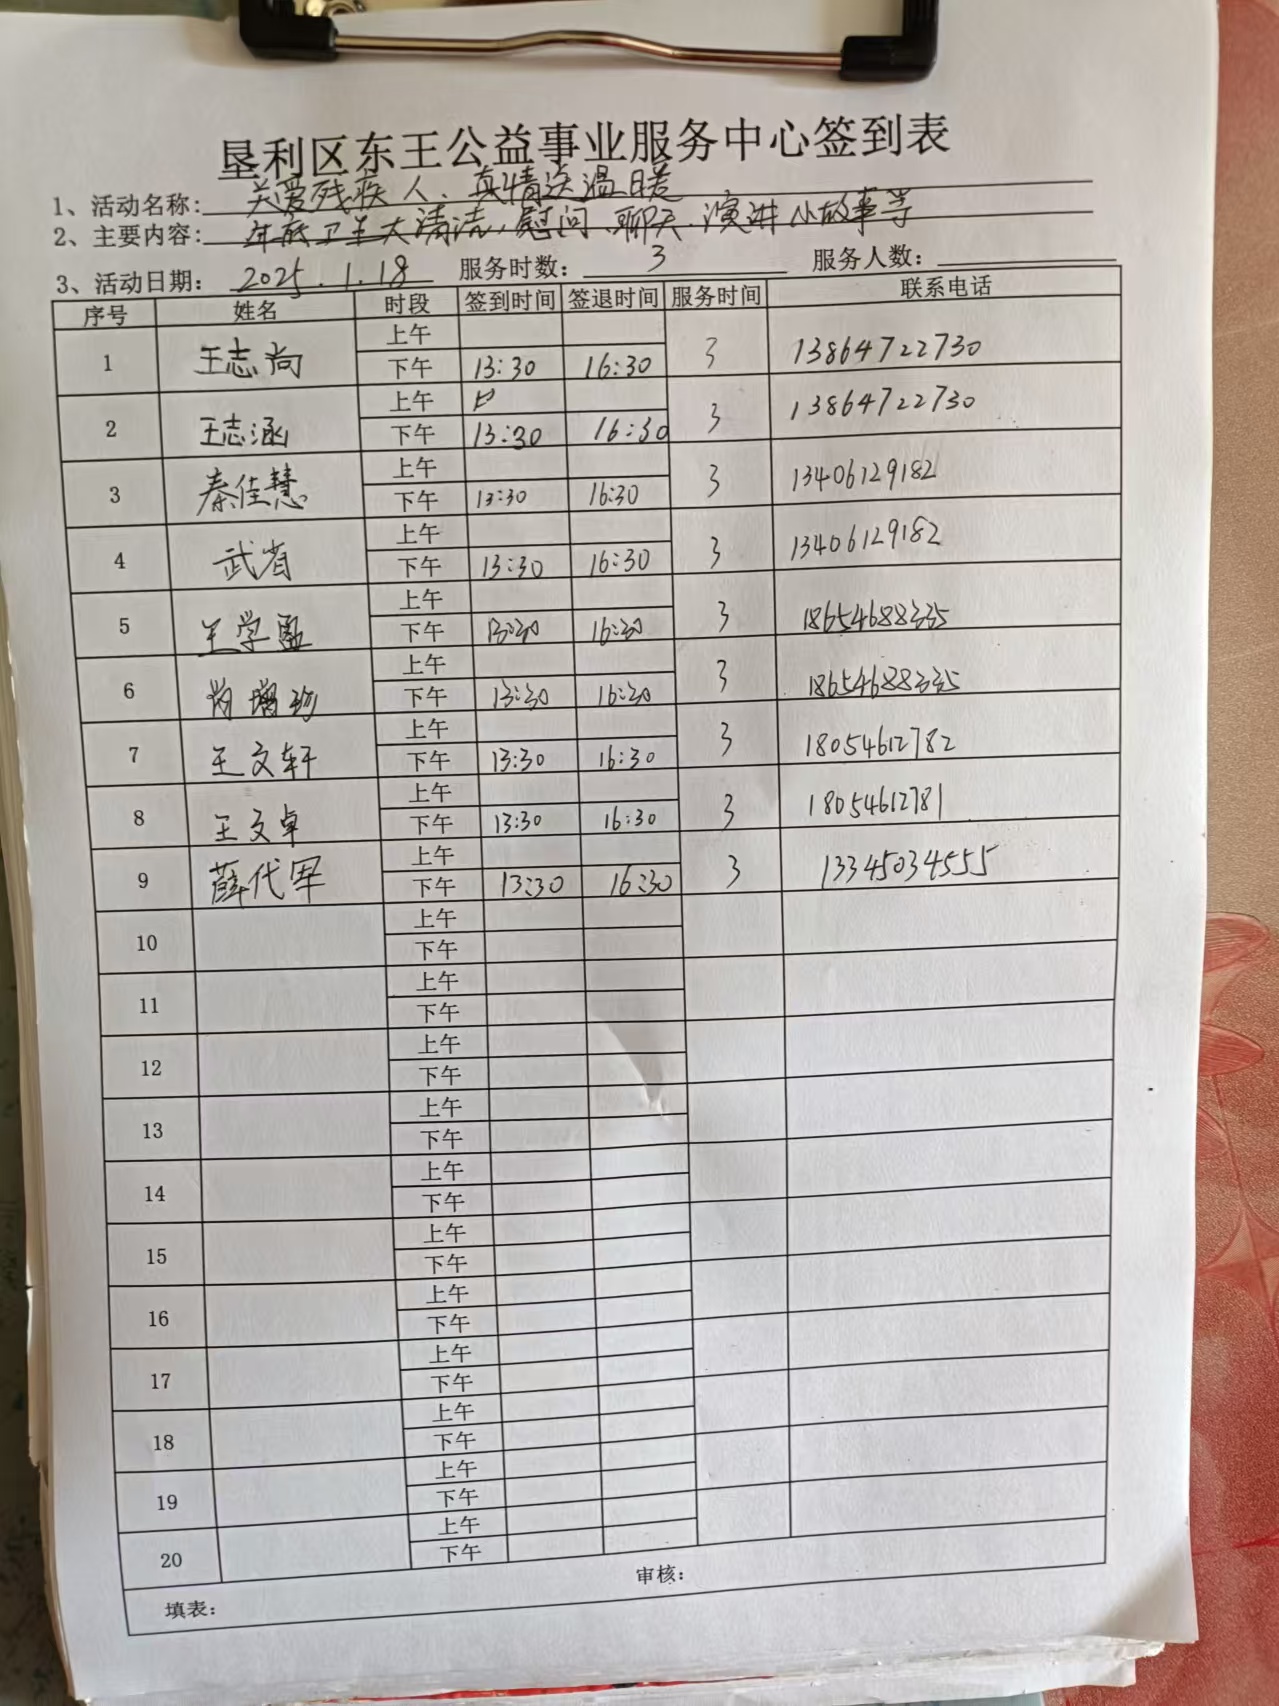 垦利区东王公益事业服务中心签到表
1、活动名称: 关爱残疾人、真情送温暖
2、主要内容: 年底卫生大清洁,慰问、聊天、演讲小故事等
3、活动日期: 2025.1.18 服务时数: 3 服务人数:
序号 姓名 时段 签到时间 签退时间 服务时间 联系电话
上午
1 王志尚 下午 13:30 16:30 3 13864722730
上午
2 王志涵 下午 13:30 16:30 3 13864722730
上午
3 秦佳慧 下午 13:30 16:30 3 13406129182
上午
4 武省 下午 13:30 16:30 3 13406129182
上午
5 王学 下午 13:30 16:30 3 18654688335
上午
6 肖增 下午 13:30 16:30 3 18654688335
上午
7 王文轩 下午 13:30 16:30 3 18054612782
上午
8 王文卓 下午 13:30 16:30 3 18054612781
上午
9 薛代军 下午 13:30 16:30 3 13345034555
上午
10 下午
上午
11 下午
上午
12 下午
上午
13 下午
上午
14 下午
上午
15 下午
上午
16 下午
上午
17 下午
上午
18 下午
上午
19 下午
上午
20 下午
填表: 审核: